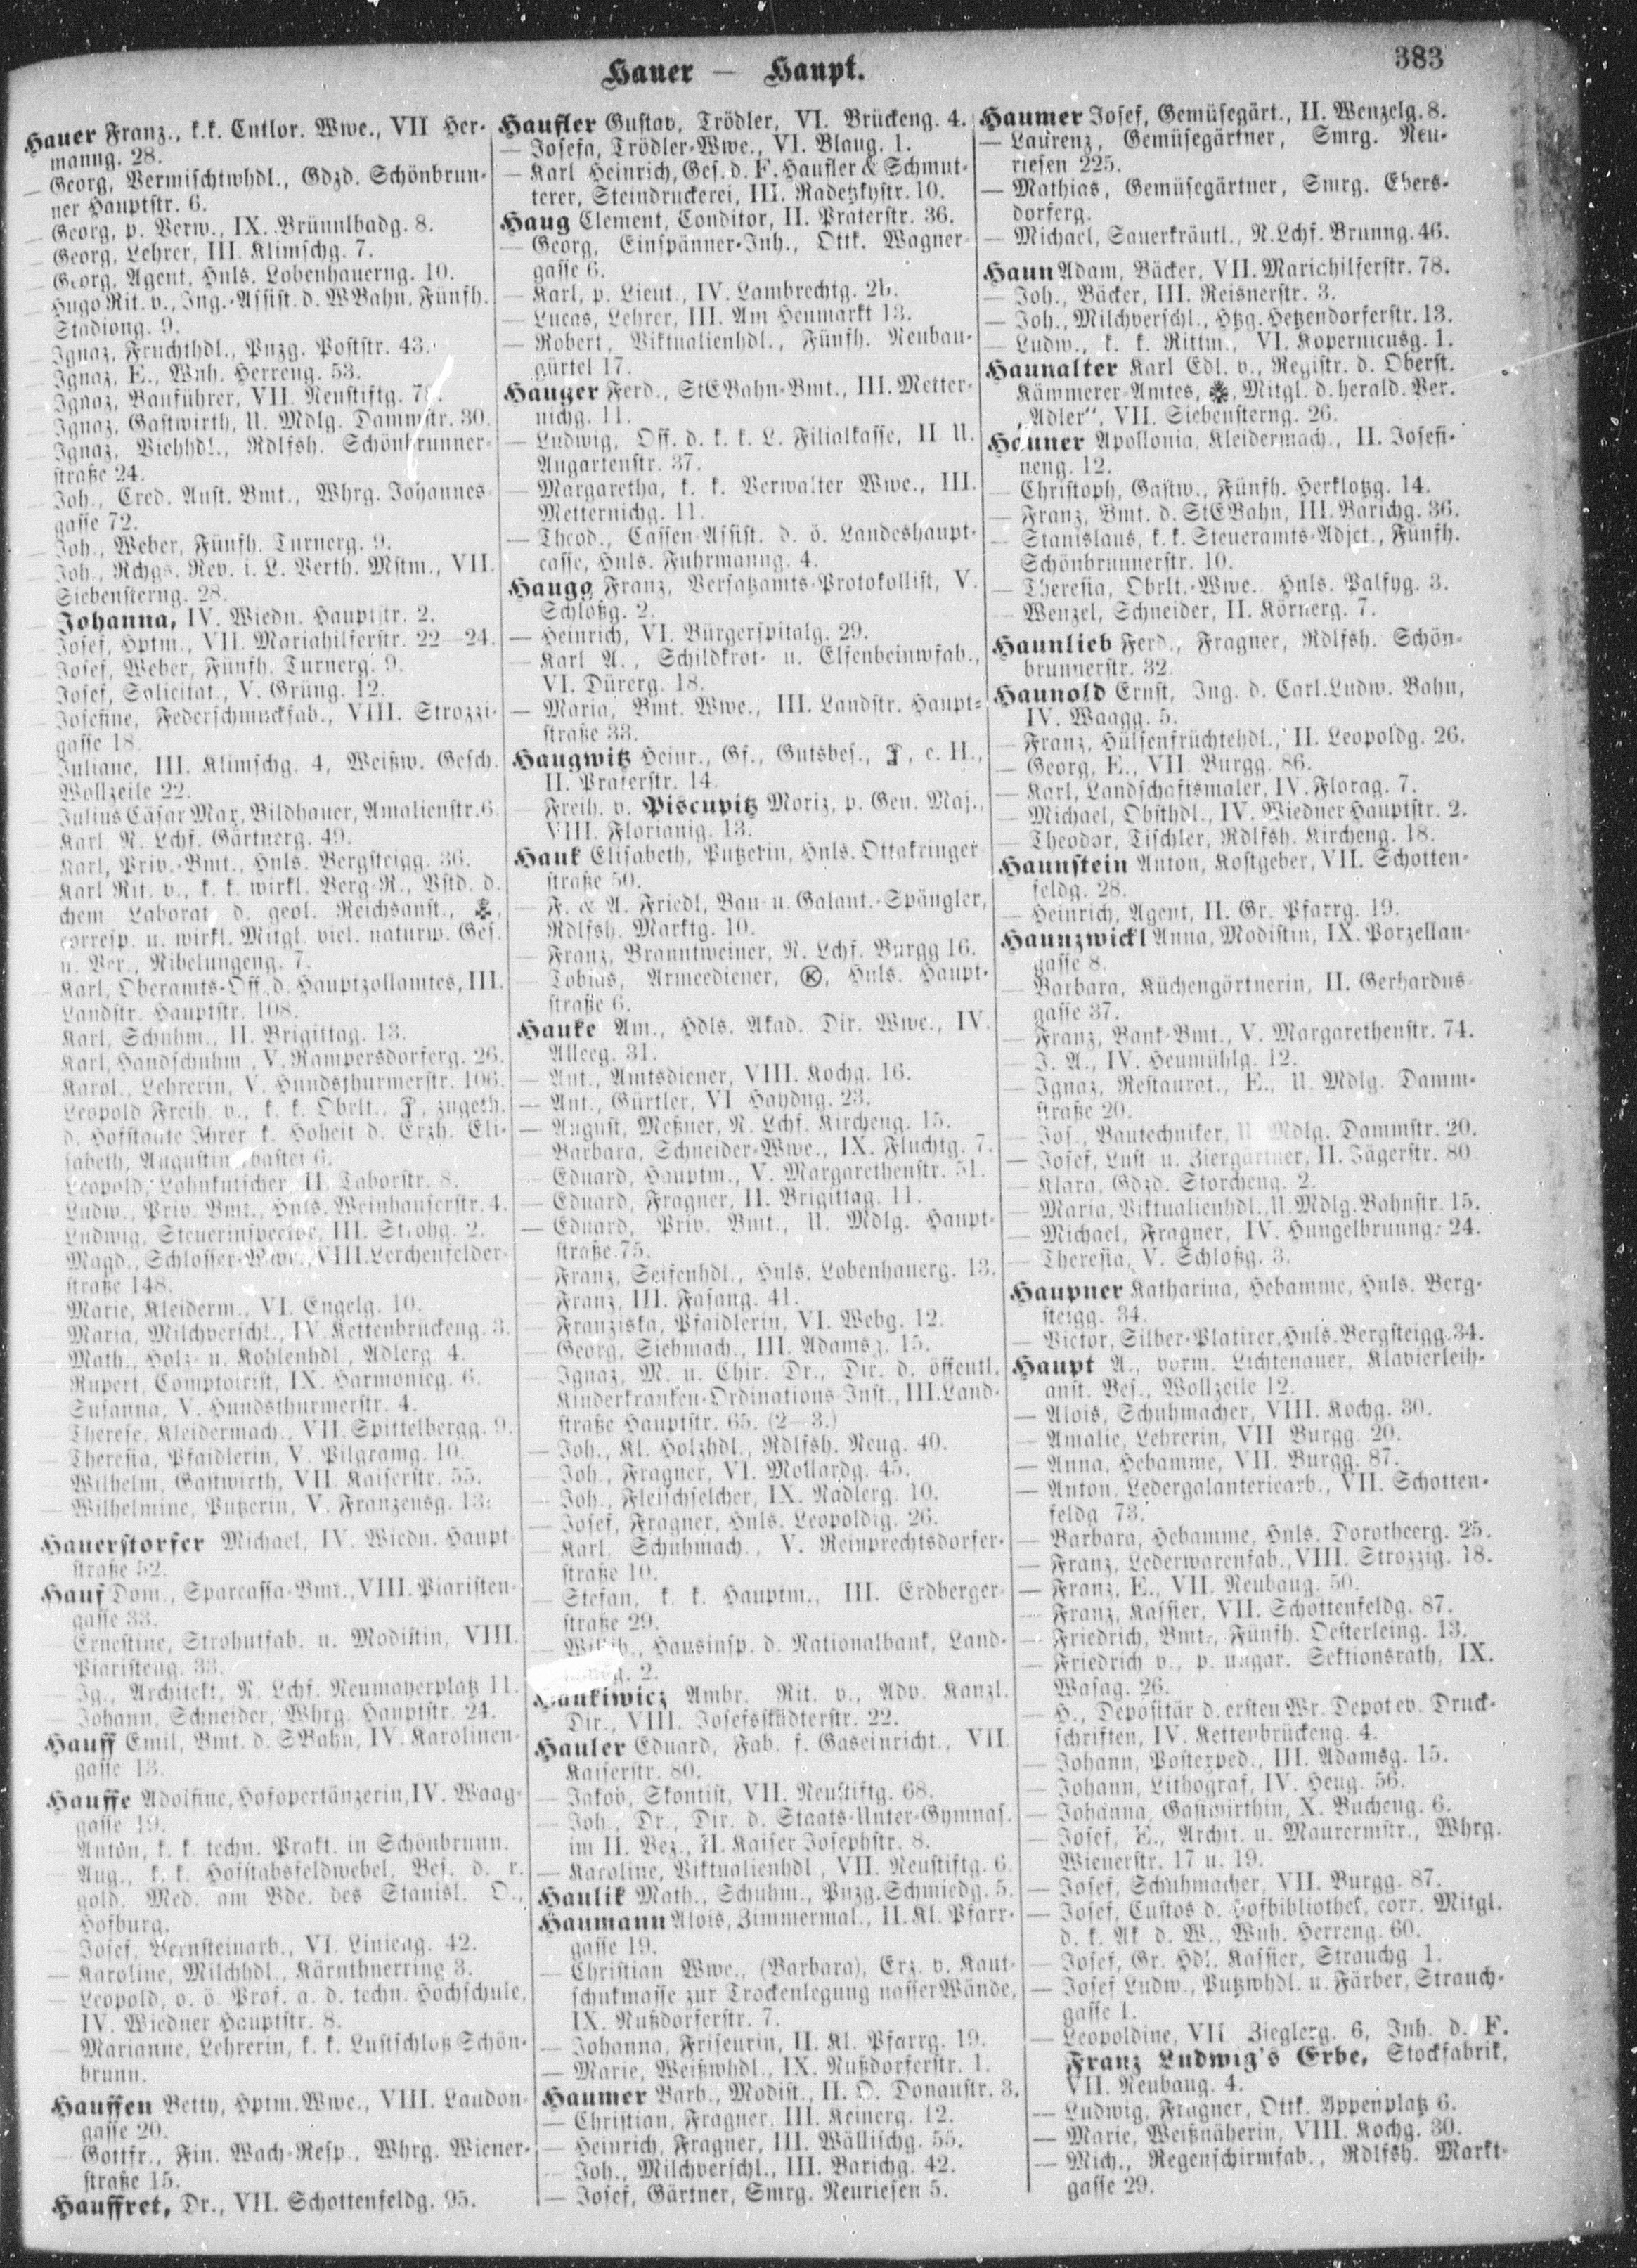 Hauer — Haupt.
383
Hauer Franz., k.k. Cntlor. Wwe., VII Her-
manng. 28.
— Georg, Vermischtwhdl., Gdzd. Schönbrun-
ner Hauptstr. 6.
— Georg, p. Verw., IX. Brünnlbadg. 8.
— Georg, Lehrer, III. Klimschg. 7.
— Georg, Agent, Hnls. Lobenhauerng. 10.
— Hugo Rit. v., Ing.-Assist. d. WBahn, Fünfh.
Stadiong. 9.
— Ignaz, Fruchthdl., Pnzg. Poststr. 43.
— Ignaz, E., Wnh. Herreng. 53.
— Ignaz, Bauführer, VII. Neustiftg.
— Ignaz, Gastwirth, U. Mdlg. Dammstr. 30.
— Ignaz, Viehhdl., Rdlfsh. Schönbrunner-
straße 24.
— Joh., Cred. Anst. Bmt., Whrg. Johannes-
gasse 72.
— Joh., Weber, Fünfh. Turnerg. 9.
— Joh., Rchgs. Rev. i. L. Verth. Mstm., VII.
Siebensterng. 28.
— Johanna, IV. Wiedn. Hauptstr. 2.
— Josef, Hptm., VII. Mariahilferstr. 22—24.
— Josef, Weber, Fünfh. Turnerg. 9.
— Josef, Solicitat., V. Grüng. 12.
— Josefine, Federschmuckfab., VIII. Strozzi-
gasse 18.
— Juliane, III. Klimschg. 4, Weißw. Gesch.
Wollzeile 22.
— Julius Cäsar Max, Bildhauer, Amalienstr. 6.
— Karl, N. Lchf. Gärtnerg. 49.
— Karl, Priv.-Bmt., Hnls. Bergsteigg. 36.
— Karl Rit. v., k. k. wirkl. Berg-R., Vstd. d.
chem Laborat. d. geol. Reichsanst.,
corresp. u. wirkl. Mitgl. viel. naturw. Ges.
u. Ver., Nibelungeng. 7.
— Karl, Oberamts-Off. d. Hauptzollamtes, III.
Landstr. Hauptstr. 108.
— Karl, Schuhm., II. Brigittag. 13.
— Karl, Handschuhm., V. Rampersdorferg. 26.
— Karol., Lehrerin, V. Hundsthurmerstr. 106.
— Leopold Freih. v., k. k. Obrlt., zugeth.
d. Hofstaate Ihrer k. Hoheit d. Erzh. Eli-
sabeth, Augustinerbastei 6.
— Leopold, Lohnkutscher, II. Taborstr. 8.
— Ludw., Priv. Bmt., Hnls. Weinhauserstr. 4.
— Ludwig, Steuerinspector, III. Strohg. 2.
— Magd., Schlosser-Wwe., VIII. Lerchenfelder-
straße 148.
— Marie, Kleiderm., VI. Engelg. 10.
— Maria, Milchverschl., IV. Kettenbrückeng. 3.
— Math., Holz- u. Kohlenhdl., Adlerg. 4.
— Rupert, Comptoirist, IX. Harmonieg. 6.
— Susanna, V. Hundsthurmerstr. 4.
— Therese, Kleidermach., VII. Spittelbergg. 9.
— Theresia, Pfaidlerin, V. Pilgramg. 10.
— Wilhelm, Gastwirth, VII. Kaiserstr. 55.
— Wilhelmine, Putzerin, V. Franzensg. 13.
Hauerstorfer Michael, IV. Wiedn. Haupt-
straße 52.
Hauf Dom., Sparcassa-Bmt., VIII. Piaristen-
gasse 33.
— Ernestine, Strohutfab. u. Modistin, VIII.
Piaristeng. 33.
— Ig., Architekt, N. Lchf. Neumayerplatz 11.
— Johann, Schneider, Whrg. Hauptstr. 24.
Hauff Emil, Bmt. d. SBahn, IV. Karolinen-
gasse 13.
Hauffe Adolfine, Hofopertänzerin, IV. Waag-
gasse 19.
— Anton, k. k. techn. Prakt. in Schönbrunn.
— Aug., k. k. Hofstabsfeldwebel, Bes. d. r.
gold. Med. am Bde. des Stanisl. O.,
Hofburg.
— Josef, Bernsteinarb., VI. Linieng. 42.
— Karoline, Milchhdl., Kärnthnerring 3.
— Leopold, o. ö. Prof. a. d. techn. Hochschule,
IV. Wiedner Hauptstr. 8.
— Marianne, Lehrerin, k. k. Lustschloß Schön-
brunn.
Hauffen Betty, Hptm. Wwe., VIII. Laudon-
gasse 20.
— Gottfr., Fin. Wach-Resp., Whrg. Wiener-
straße 15.
Hauffret, Dr., VII. Schottenfeldg. 95.
Haufler Gustav, Trödler, VI. Brückeng. 4.
— Josefa, Trödler-Wwe., VI. Blaug. 1.
— Karl Heinrich, Ges. d. F. Haufler & Schmut-
terer, Steindruckerei, III. Radetzkystr. 10.
Haug Clement, Conditor, II. Praterstr. 36.
— Georg, Einspänner-Inh., Ottk. Wagner-
gasse 6.
— Karl, p. Lieut., IV. Lambrechtg. 2b.
— Lucas, Lehrer, III. Am Heumarkt 13.
— Robert, Viktualienhdl., Fünfh. Neubau-
gürtel 17.
Hauger Ferd., StEBahn-Bmt., III. Metter-
nichg. 11.
— Ludwig, Off. d. k. k. L. Filialkasse, II U.
Augartenstr. 37.
— Margaretha, k. k. Verwalter Wwe., III.
Metternichg. 11.
— Theod., Cassen-Assist. d. ö. Landeshaupt-
casse, Hnls. Fuhrmanng. 4.
Haugg Franz, Versatzamts-Protokollist, V.
Schloßg. 2.
— Heinrich, VI. Bürgerspitalg. 29.
— Karl A., Schildkrot- u. Elfenbeinwfab.,
VI. Dürerg. 18.
— Maria, Bmt. Wwe., III. Landstr. Haupt-
straße 33.
Haugwitz Heinr., Gf., Gutsbes., e. H.,
II. Praterstr. 14.
— Freih. v. Piscupitz Moriz, p. Gen. Maj.,
VIII. Florianig. 13.
Hauk Elisabeth, Putzerin, Hnls. Ottakringer-
straße 50.
— F. & A. Friedl, Bau- u. Galant.-Spängler,
Rdlfsh. Marktg. 10.
— Franz, Branntweiner, N. Lchf. Burgg 16.
— Tobias, Armeediener, Ⓚ, Hnls. Haupt-
straße 6.
Hauke Am., Hdls. Akad. Dir. Wwe., IV.
Alleeg. 31.
— Ant., Amtsdiener, VIII. Kochg. 16.
— Ant., Gürtler, VI Haydng. 23.
— August, Meßner, N. Lchf. Kircheng. 15.
— Barbara, Schneider-Wwe., IX. Fluchtg. 7.
— Eduard, Hauptm., V. Margarethenstr. 51.
— Eduard, Fragner, II. Brigittag. 11.
— Eduard, Priv. Bmt., U. Mdlg. Haupt-
straße 75.
— Franz, Seifenhdl., Hnls. Lobenhauerg. 13.
— Franz, III. Fasang. 41.
— Franziska, Pfaidlerin, VI. Webg. 12.
— Georg, Siebmach., III. Adamsg. 15.
— Ignaz, M. u. Chir. Dr., Dir. d. öffentl.
Kinderkranken-Ordinations-Inst., III. Land-
straße Hauptstr. 65. (2—3.)
— Joh., Kl. Holzhdl., Rdlfsh. Neug. 40.
— Joh., Fragner, VI. Mollardg. 45.
— Joh., Fleischselcher, IX. Nadlerg. 10.
— Josef, Fragner, Hnls. Leopoldig. 26.
— Karl, Schuhmach., V. Reinprechtsdorfer-
straße 10.
— Stefan, k. k. Hauptm., III. Erdberger-
straße 29.
— Hausinsp. d. Nationalbank, Land-
2.
Haukiwicz Ambr. Rit. v., Adv. Kanzl.
Dir., VIII. Josefsstädterstr. 22.
Hauler Eduard, Fab. f. Gaseinricht., VII.
Kaiserstr. 80.
— Jakob, Skontist, VII. Neustiftg. 68.
— Joh., Dr., Dir. d. Staats-Unter-Gymnas.
im II. Bez., II. Kaiser Josephstr. 8.
— Karoline, Viktualienhdl., VII. Neustiftg. 6.
Haulik Math., Schuhm., Pnzg. Schmiedg. 5.
Haumann Alois, Zimmermal., II. Kl. Pfarr-
gasse 19.
— Christian Wwe., (Barbara), Erz. v. Kaut-
schukmasse zur Trockenlegung nasser Wände,
IX. Nußdorferstr. 7.
— Johanna, Friseurin, II. Kl. Pfarrg. 19.
— Marie, Weißwhdl., IX. Nußdorferstr. 1.
Haumer Barb., Modist., II. O. Donaustr. 3.
— Christian, Fragner, III. Keinerg. 12.
— Heinrich, Fragner, III. Wällischg. 55.
— Joh., Milchverschl., III. Barichg. 42.
— Josef, Gärtner, Smrg. Neuriesen 5.
Haumer Josef, Gemüsegärt., II. Wenzelg. 8.
— Laurenz, Gemüsegärtner, Smrg. Neu-
riesen 225.
— Mathias, Gemüsegärtner, Smrg. Ebers-
dorferg.
— Michael, Sauerkräutl., N. Lchf. Brunng. 46.
Haun Adam, Bäcker, VII. Mariahilferstr. 78.
— Joh., Bäcker, III. Reisnerstr. 3.
— Joh., Milchverschl., Htzg. Hetzendorferstr. 13.
— Ludw., k. k. Rittm., VI. Kopernicusg. 1.
Haunalter Karl Edl. v., Registr. d. Oberst.
Kämmerer-Amtes, Mitgl. d. herald. Ver.
„Adler“, VII. Siebensterng. 26.
Hauner Apollonia, Kleidermach., II. Josefi-
neng. 12.
— Christoph, Gastw., Fünfh. Herklotzg. 14.
— Franz, Bmt. d. StEBahn, III. Barichg. 36.
— Stanislaus, k. k. Steueramts-Adjct., Fünfh.
Schönbrunnerstr. 10.
— Theresia, Obrlt.-Wwe. Hnls. Palfyg. 3.
— Wenzel, Schneider, II. Körnerg. 7.
Haunlieb Ferd., Fragner, Rdlfsh. Schön-
brunnerstr. 32.
Haunold Ernst, Ing. d. Carl.Ludw. Bahn,
IV. Waagg. 5.
— Franz, Hülsenfrüchtehdl., II. Leopoldg. 26.
— Georg, E., VII. Burgg. 86.
— Karl, Landschaftsmaler, IV. Florag. 7.
— Michael, Obsthdl., IV. Wiedner Hauptstr. 2.
— Theodor, Tischler, Rdlfsh. Kircheng. 18.
Haunstein Anton, Kostgeber, VII. Schotten-
feldg. 28.
— Heinrich, Agent, II. Gr. Pfarrg. 19.
Haunzwickl Anna, Modistin, IX. Porzellan-
gasse 8.
— Barbara, Küchengärtnerin, II. Gerhardus-
gasse 37.
— Franz, Bank-Bmt., V. Margarethenstr. 74.
— J. A., IV. Heumühlg. 12.
— Ignaz, Restaurat., E., U. Mdlg. Damm-
straße 20.
— Jos., Bautechniker, U. Mdlg. Dammstr. 20.
— Josef, Lust- u. Ziergärtner, II. Jägerstr. 80.
— Klara, Gdzd. Storcheng. 2.
— Maria, Viktualienhdl., U. Mdlg. Bahnstr. 15.
— Michael, Fragner, IV. Hungelbrunng. 24.
— Theresia, V. Schloßg. 3.
Haupner Katharina, Hebamme, Hnls. Berg-
steigg. 34.
— Victor, Silber-Platirer, Hnls. Bergsteigg. 34.
Haupt A., vorm. Lichtenauer, Klavierleih-
anst. Bes., Wollzeile 12.
— Alois, Schuhmacher, VIII. Kochg. 30.
— Amalie, Lehrerin, VII Burgg. 20.
— Anna, Hebamme, VII. Burgg. 87.
— Anton, Ledergalanteriearb., VII. Schotten-
feldg 73.
— Barbara, Hebamme, Hnls. Dorotheerg. 25.
— Franz, Lederwarenfab., VIII. Strozzig. 18.
— Franz, E., VII. Neubaug. 50.
— Franz, Kassier, VII. Schottenfeldg. 87.
— Friedrich, Bmt., Fünfh. Oesterleing. 13.
— Friedrich v., p. ungar. Sektionsrath, IX.
Wasag. 26.
— H., Depositär d. ersten Wr. Depot ev. Druck-
schriften, IV. Kettenbrückeng. 4.
— Johann, Postexped., III. Adamsg. 15.
— Johann, Lithograf, IV. Heug. 56.
— Johanna, Gastwirthin, X. Bucheng. 6.
— Josef, E., Archit. u. Maurermstr., Whrg.
Wienerstr. 17 u. 19.
— Josef, Schuhmacher, VII. Burgg. 87.
— Josef, Custos d. Hofbibliothek, corr. Mitgl.
d. k. Ak d. W., Wnh. Herreng. 60.
— Josef, Gr. Hdl. Kassier, Strauchg 1.
— Josef Ludw., Putzwhdl. u. Färber, Strauch-
gasse 1.
— Leopoldine, VII. Zieglerg. 6, Inh. d. F.
Franz Ludwig's Erbe, Stockfabrik,
VII. Neubaug. 4.
— Ludwig, Fragner, Ottk. Yppenplatz 6.
— Marie, Weißnäherin, VIII. Kochg. 30.
— Mich., Regenschirmfab., Rdlfsh. Markt-
gasse 29.